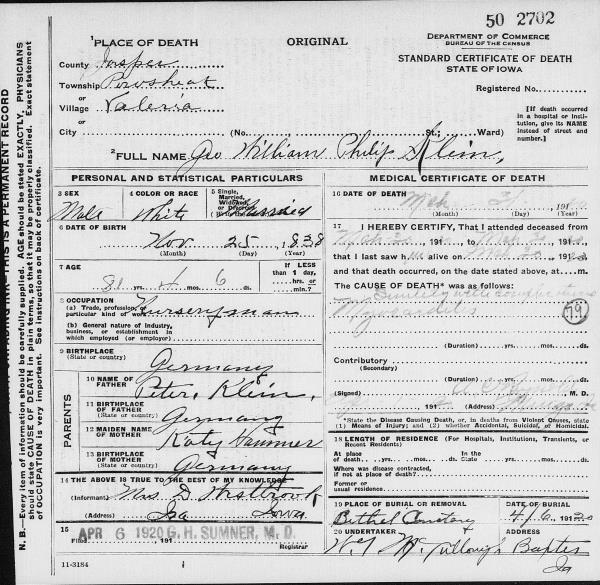 50 2702
1 PLACE OF DEATH
ORIGINAL
DEPARTMENT OF COMMERCE
BUREAU OF THE CENSUS
STANDARD CERTIFICATE OF DEATH
STATE OF IOWA
County Jasper
Township Poweshiek
or
Village Valeria
or
City (No. St.; Ward)
Registered No.
[If death occurred in a hospital or institution, give its NAME instead of street and number.]
2 FULL NAME Geo William Philip Klein,
PERSONAL AND STATISTICAL PARTICULARS
3 SEX Male
4 COLOR OR RACE White
5 Single, Married, Widowed, or Divorced (Write the word) Married
6 DATE OF BIRTH Nov 25, 1838
(Month) (Day) (Year)
7 AGE
81 yrs. 4 mos. 6 ds.
If LESS than 1 day, ....hrs. or ....min.?
8 OCCUPATION
(a) Trade, profession, or particular kind of work Nurseryman
(b) General nature of industry, business, or establishment in which employed (or employer)
9 BIRTHPLACE
(State or country) Germany
PARENTS
10 NAME OF FATHER Peter Klein,
11 BIRTHPLACE OF FATHER
(State or country) Germany
12 MAIDEN NAME OF MOTHER Katy
13 BIRTHPLACE OF MOTHER
(State or country) Germany
14 THE ABOVE IS TRUE TO THE BEST OF MY KNOWLEDGE
(Informant) Mrs
(Address) Ira Iowa
15
Filed APR 6 1920 191 G. H. SUMNER, M. D.
Registrar
11-3184
MEDICAL CERTIFICATE OF DEATH
16 DATE OF DEATH Mch 31 191
(Month) (Day) (Year)
17 I HEREBY CERTIFY, That I attended deceased from
191 , to 191 ,
that I last saw h alive on 191 ,
and that occurred, on the date stated above, at m.
The CAUSE OF DEATH* was as follows:
Senility with complications
79
(Duration) yrs. mos. ds.
Contributory
(Secondary)
(Duration) yrs. mos. ds.
(Signed) M. D.
191 (Address)
*State the Disease Causing Death, or, in deaths from Violent Causes, state (1) Means of Injury; and (2) whether Accidental, Suicidal, or Homicidal.
18 LENGTH OF RESIDENCE (For Hospitals, Institutions, Transients, or Recent Residents)
At place of death yrs. mos. ds. In the State yrs. mos. ds.
Where was disease contracted, if not at place of death?
Former or usual residence
19 PLACE OF BURIAL OR REMOVAL Bethel Cemetery
DATE OF BURIAL 4/6, 1920
20 UNDERTAKER McCullough
ADDRESS Baxter Ia
N. B.—Every item of information should be carefully supplied. AGE should be stated EXACTLY, PHYSICIANS
should state CAUSE OF DEATH in plain terms, so that it may be properly classified. Exact statement
of OCCUPATION is very important. See instructions on back of certificate.
THIS IS A PERMANENT RECORD